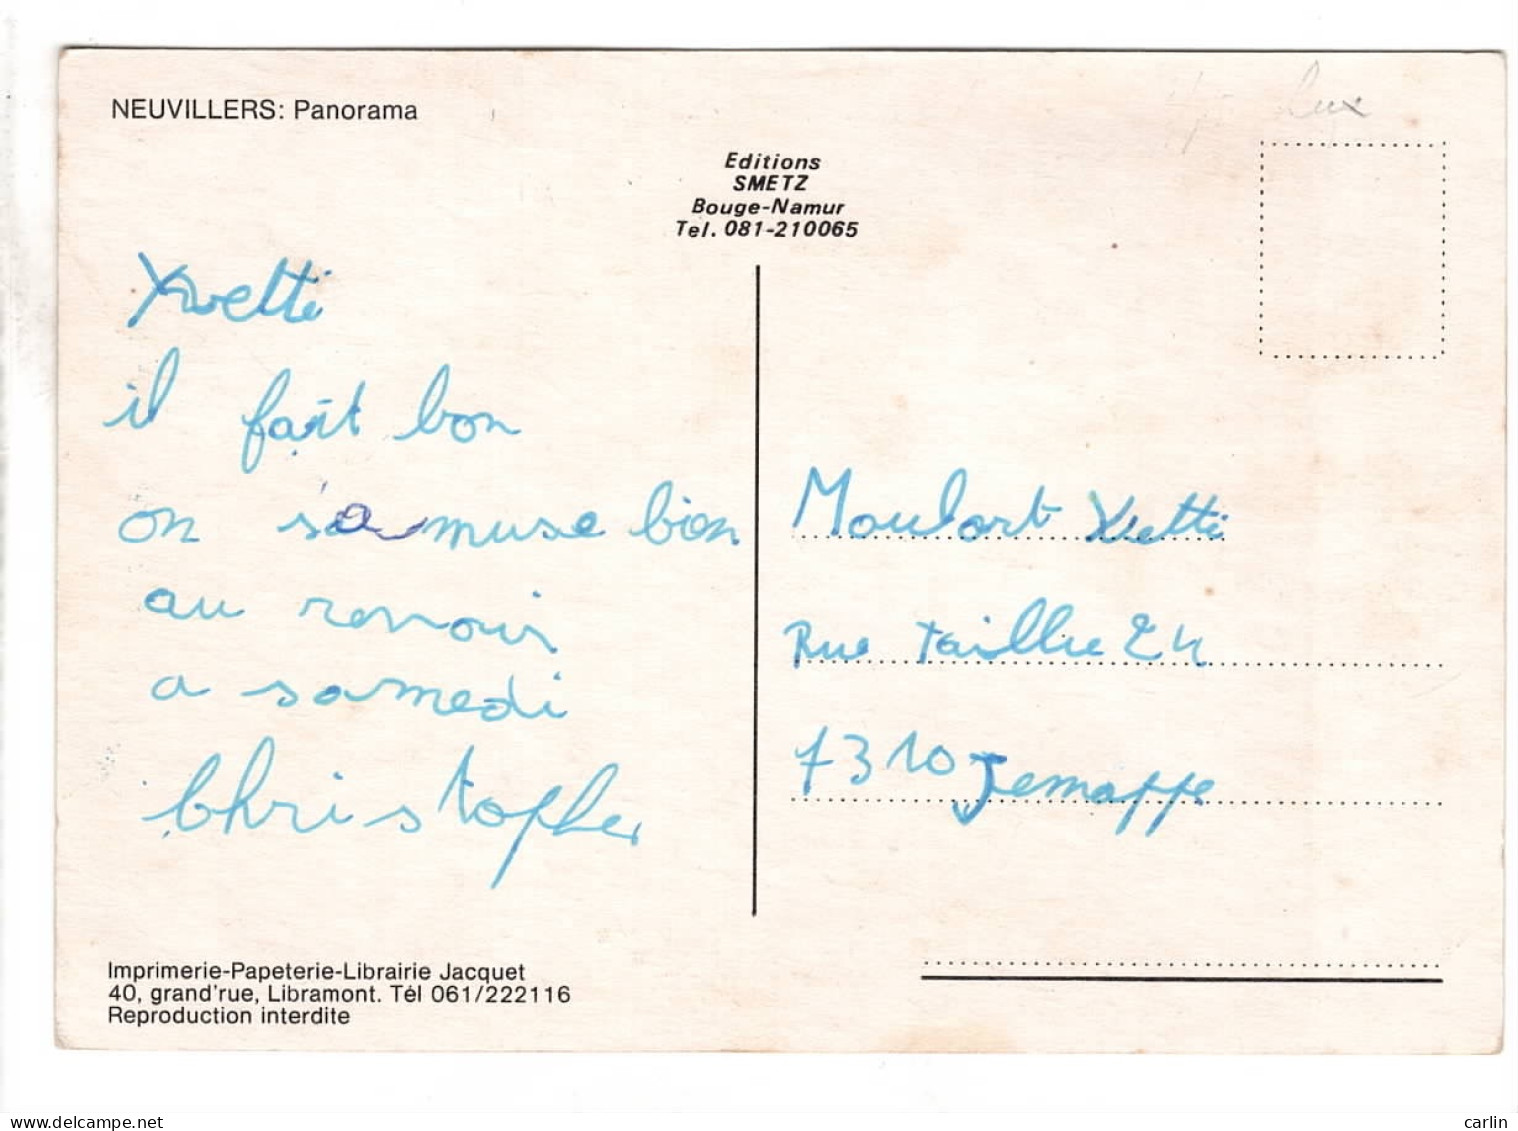 NEUVILLERS: Panorama
lux
Editions
SMETZ
Bouge-Namur
Tel. 081-210065
Yvette
il fait bon
on s'amuse bien
au revoir
a samedi
Christopher
Moulart Yvette
Rue taillie 24
7310 Jemappe
Imprimerie-Papeterie-Librairie Jacquet
40, grand'rue, Libramont. Tél 061/222116
Reproduction interdite
www.delcampe.net
carlin